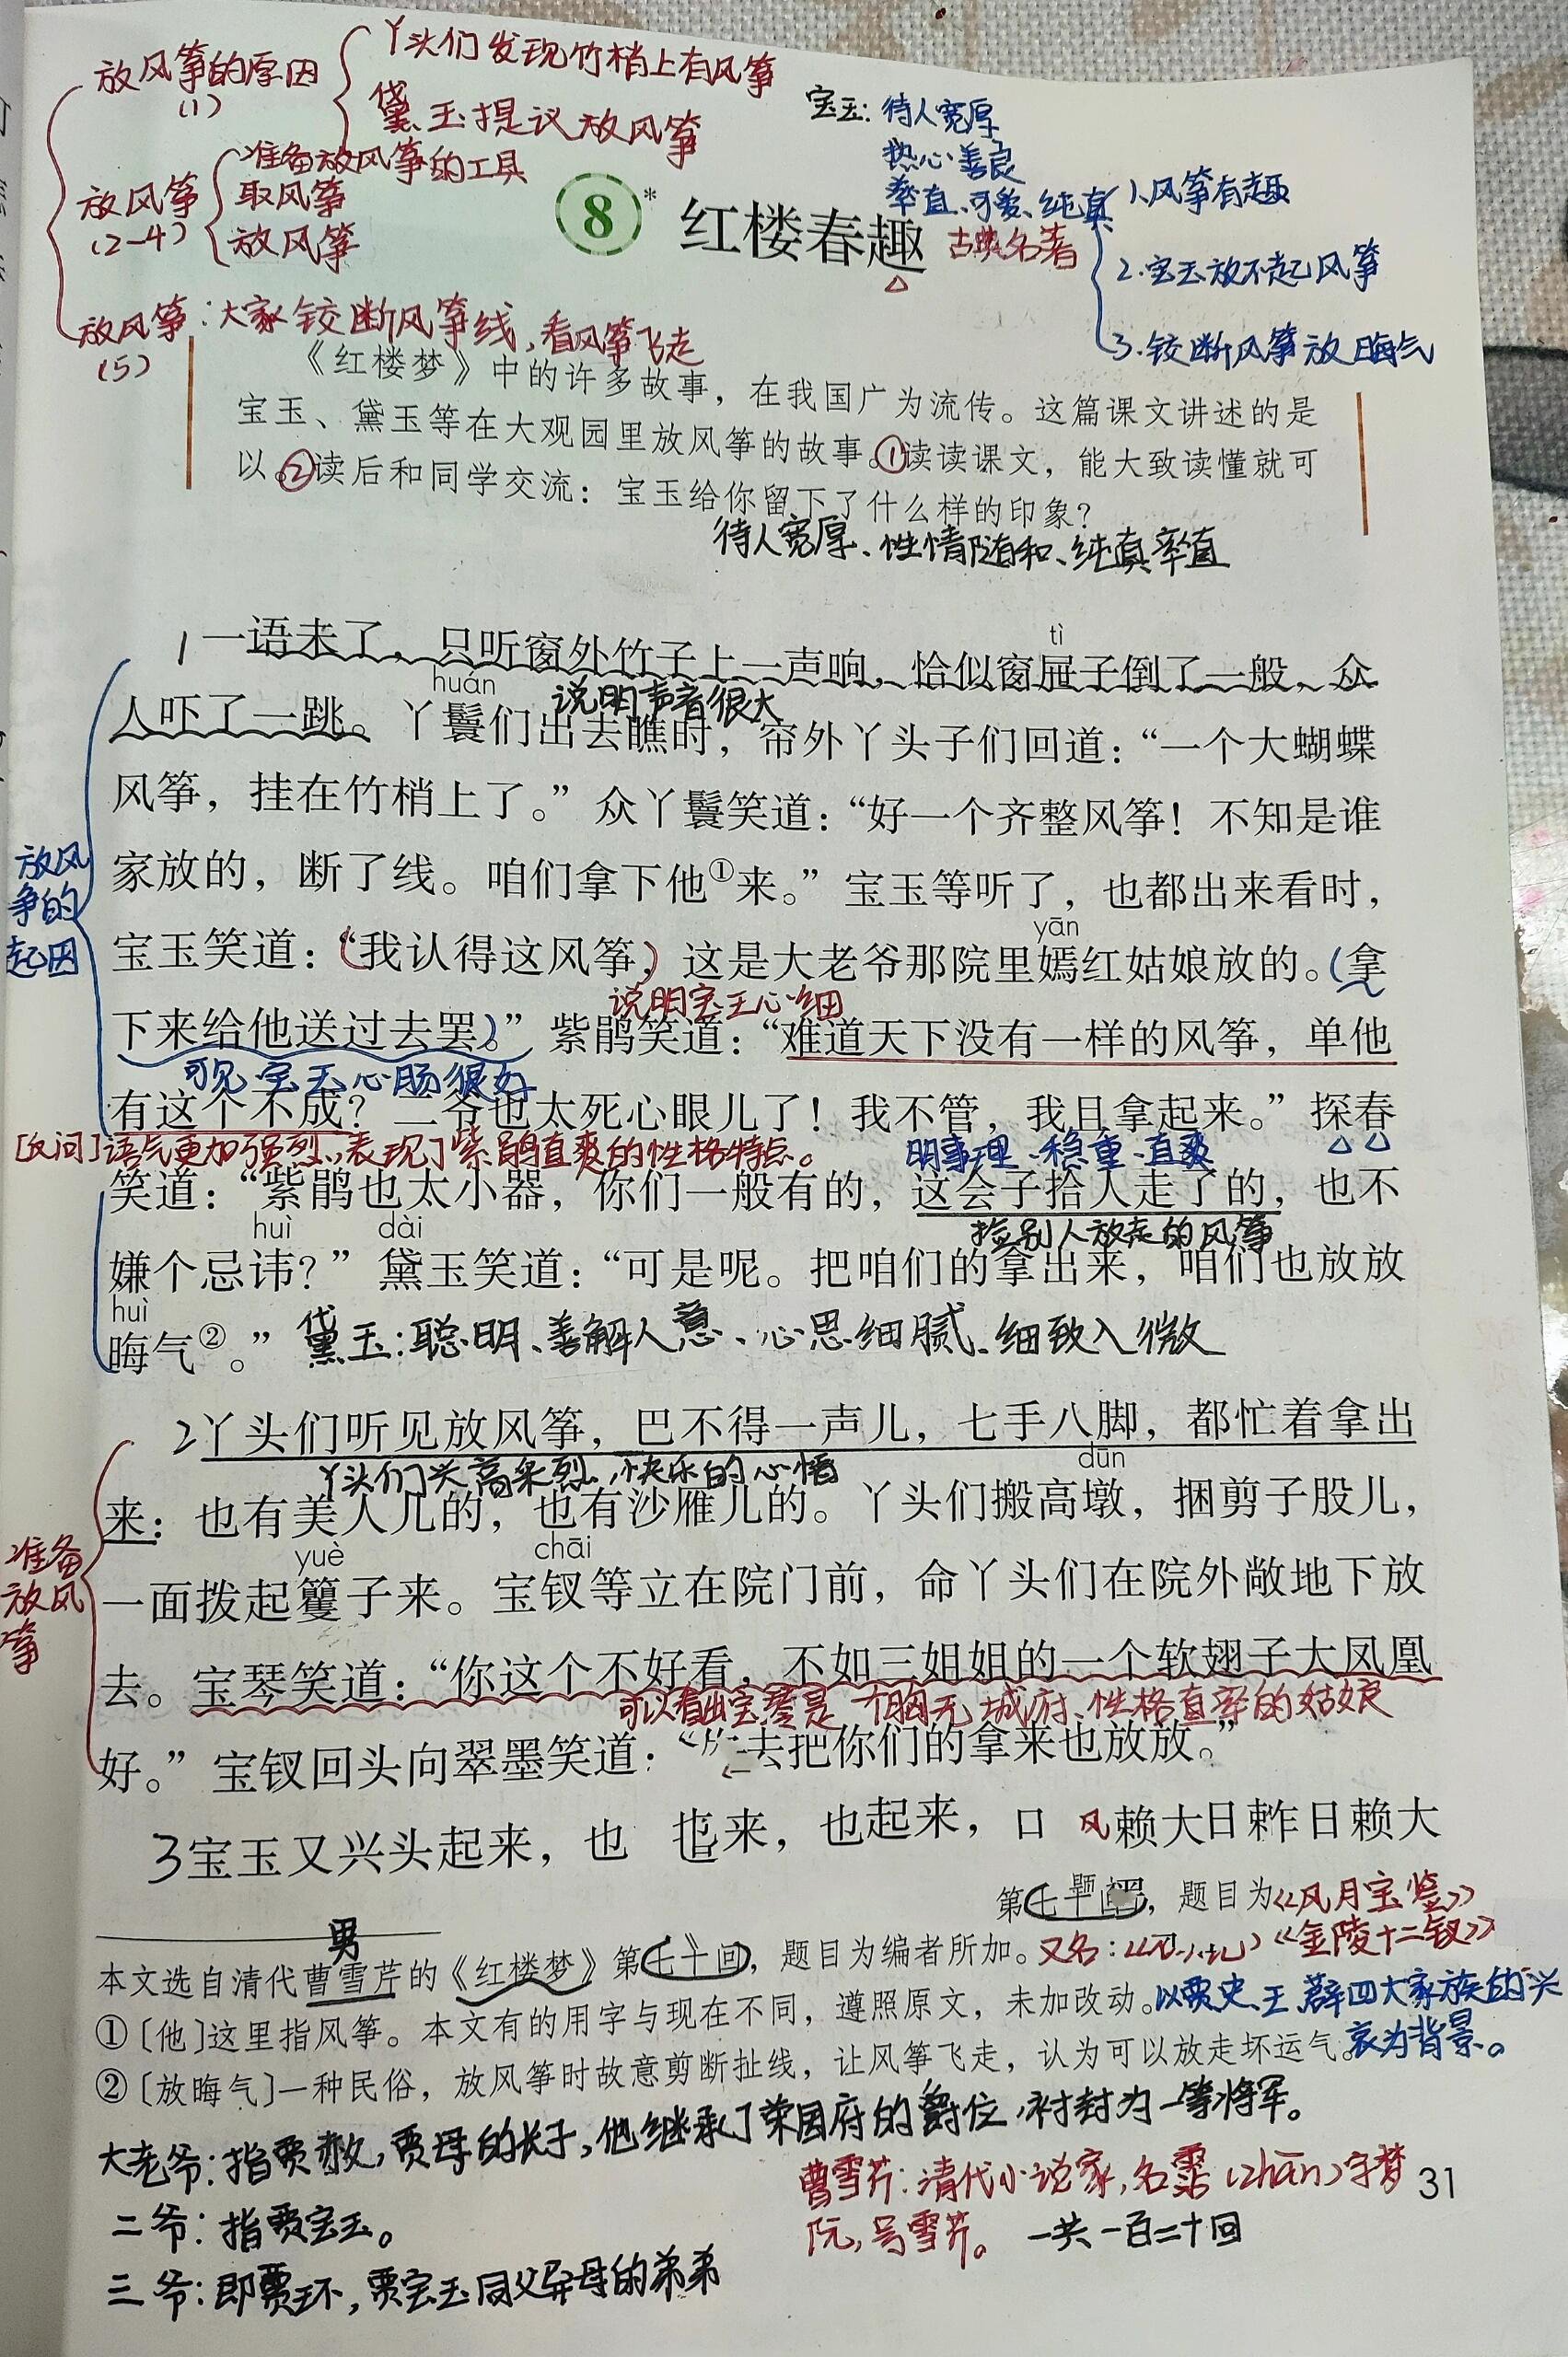 放风筝的原因
(1)
丫头们发现竹梢上有风筝
黛玉提议放风筝
放风筝
(2-4)
准备放风筝的工具
取风筝
放风筝
放风筝：大家铰断风筝线，看风筝飞走
(5)
宝玉：待人宽厚
热心善良
率直、可爱、纯真
8* 红楼春趣
古典名著
1.风筝有趣
2.宝玉放不起风筝
3.铰断风筝放晦气
《红楼梦》中的许多故事，在我国广为流传。这篇课文讲述的是
宝玉、黛玉等在大观园里放风筝的故事。①读读课文，能大致读懂就可
以。②读后和同学交流：宝玉给你留下了什么样的印象？
待人宽厚、性情随和、纯真率直
tì
1一语未了，只听窗外竹子上一声响，恰似窗屉子倒了一般，众
huán
说明声音很大
人吓了一跳。丫鬟们出去瞧时，帘外丫头子们回道：“一个大蝴蝶
风筝，挂在竹梢上了。”众丫鬟笑道：“好一个齐整风筝！不知是谁
家放的，断了线。咱们拿下他①来。”宝玉等听了，也都出来看时，
yān
宝玉笑道：(“我认得这风筝)，这是大老爷那院里嫣红姑娘放的。(拿
说明宝玉心细
下来给他送过去罢)。”紫鹃笑道：“难道天下没有一样的风筝，单他
可见宝玉心肠很好
有这个不成？二爷也太死心眼儿了！我不管，我且拿起来。”探春
[反问]语气更加强烈，表现了紫鹃直爽的性格特点。
明事理、稳重、直爽
笑道：“紫鹃也太小器，你们一般有的，这会子拾人走了的，也不
huì dài
捡别人放走的风筝
嫌个忌讳？”黛玉笑道：“可是呢。把咱们的拿出来，咱们也放放
huì
晦气②。”
黛玉：聪明、善解人意、心思细腻、细致入微
放风
争的
起因
2丫头们听见放风筝，巴不得一声儿，七手八脚，都忙着拿出
dūn
丫头们兴高采烈、快乐的心情
来：也有美人儿的，也有沙雁儿的。丫头们搬高墩，捆剪子股儿，
yuè chāi
一面拨起籰子来。宝钗等立在院门前，命丫头们在院外敞地下放
去。宝琴笑道：“你这个不好看，不如三姐姐的一个软翅子大凤凰
可以看出宝琴是个胸无城府、性格直率的姑娘
好。”宝钗回头向翠墨笑道：“去把你们的拿来也放放。”
准备
放风
筝
3宝玉又兴头起来，也 也来，也起来，口 风赖大日
昨日赖大
题目为《风月宝鉴》
男
本文选自清代曹雪芹的《红楼梦》第七十回，题目为编者所加。
又名：《金陵十二钗》
①[他]这里指风筝。本文有的用字与现在不同，遵照原文，未加改动。
以贾、史、王、薛四大家族的兴
衰为背景。
②[放晦气]一种民俗，放风筝时故意剪断扯线，让风筝飞走，认为可以放走坏运气。
大老爷：指贾赦，贾母的长子，他继承了荣国府的爵位，被封为一等将军。
二爷：指贾宝玉。
三爷：即贾环，贾宝玉同父异母的弟弟
曹雪芹：清代小说家，名霑(zhān)字梦
阮，号雪芹。
一共一百二十回
31